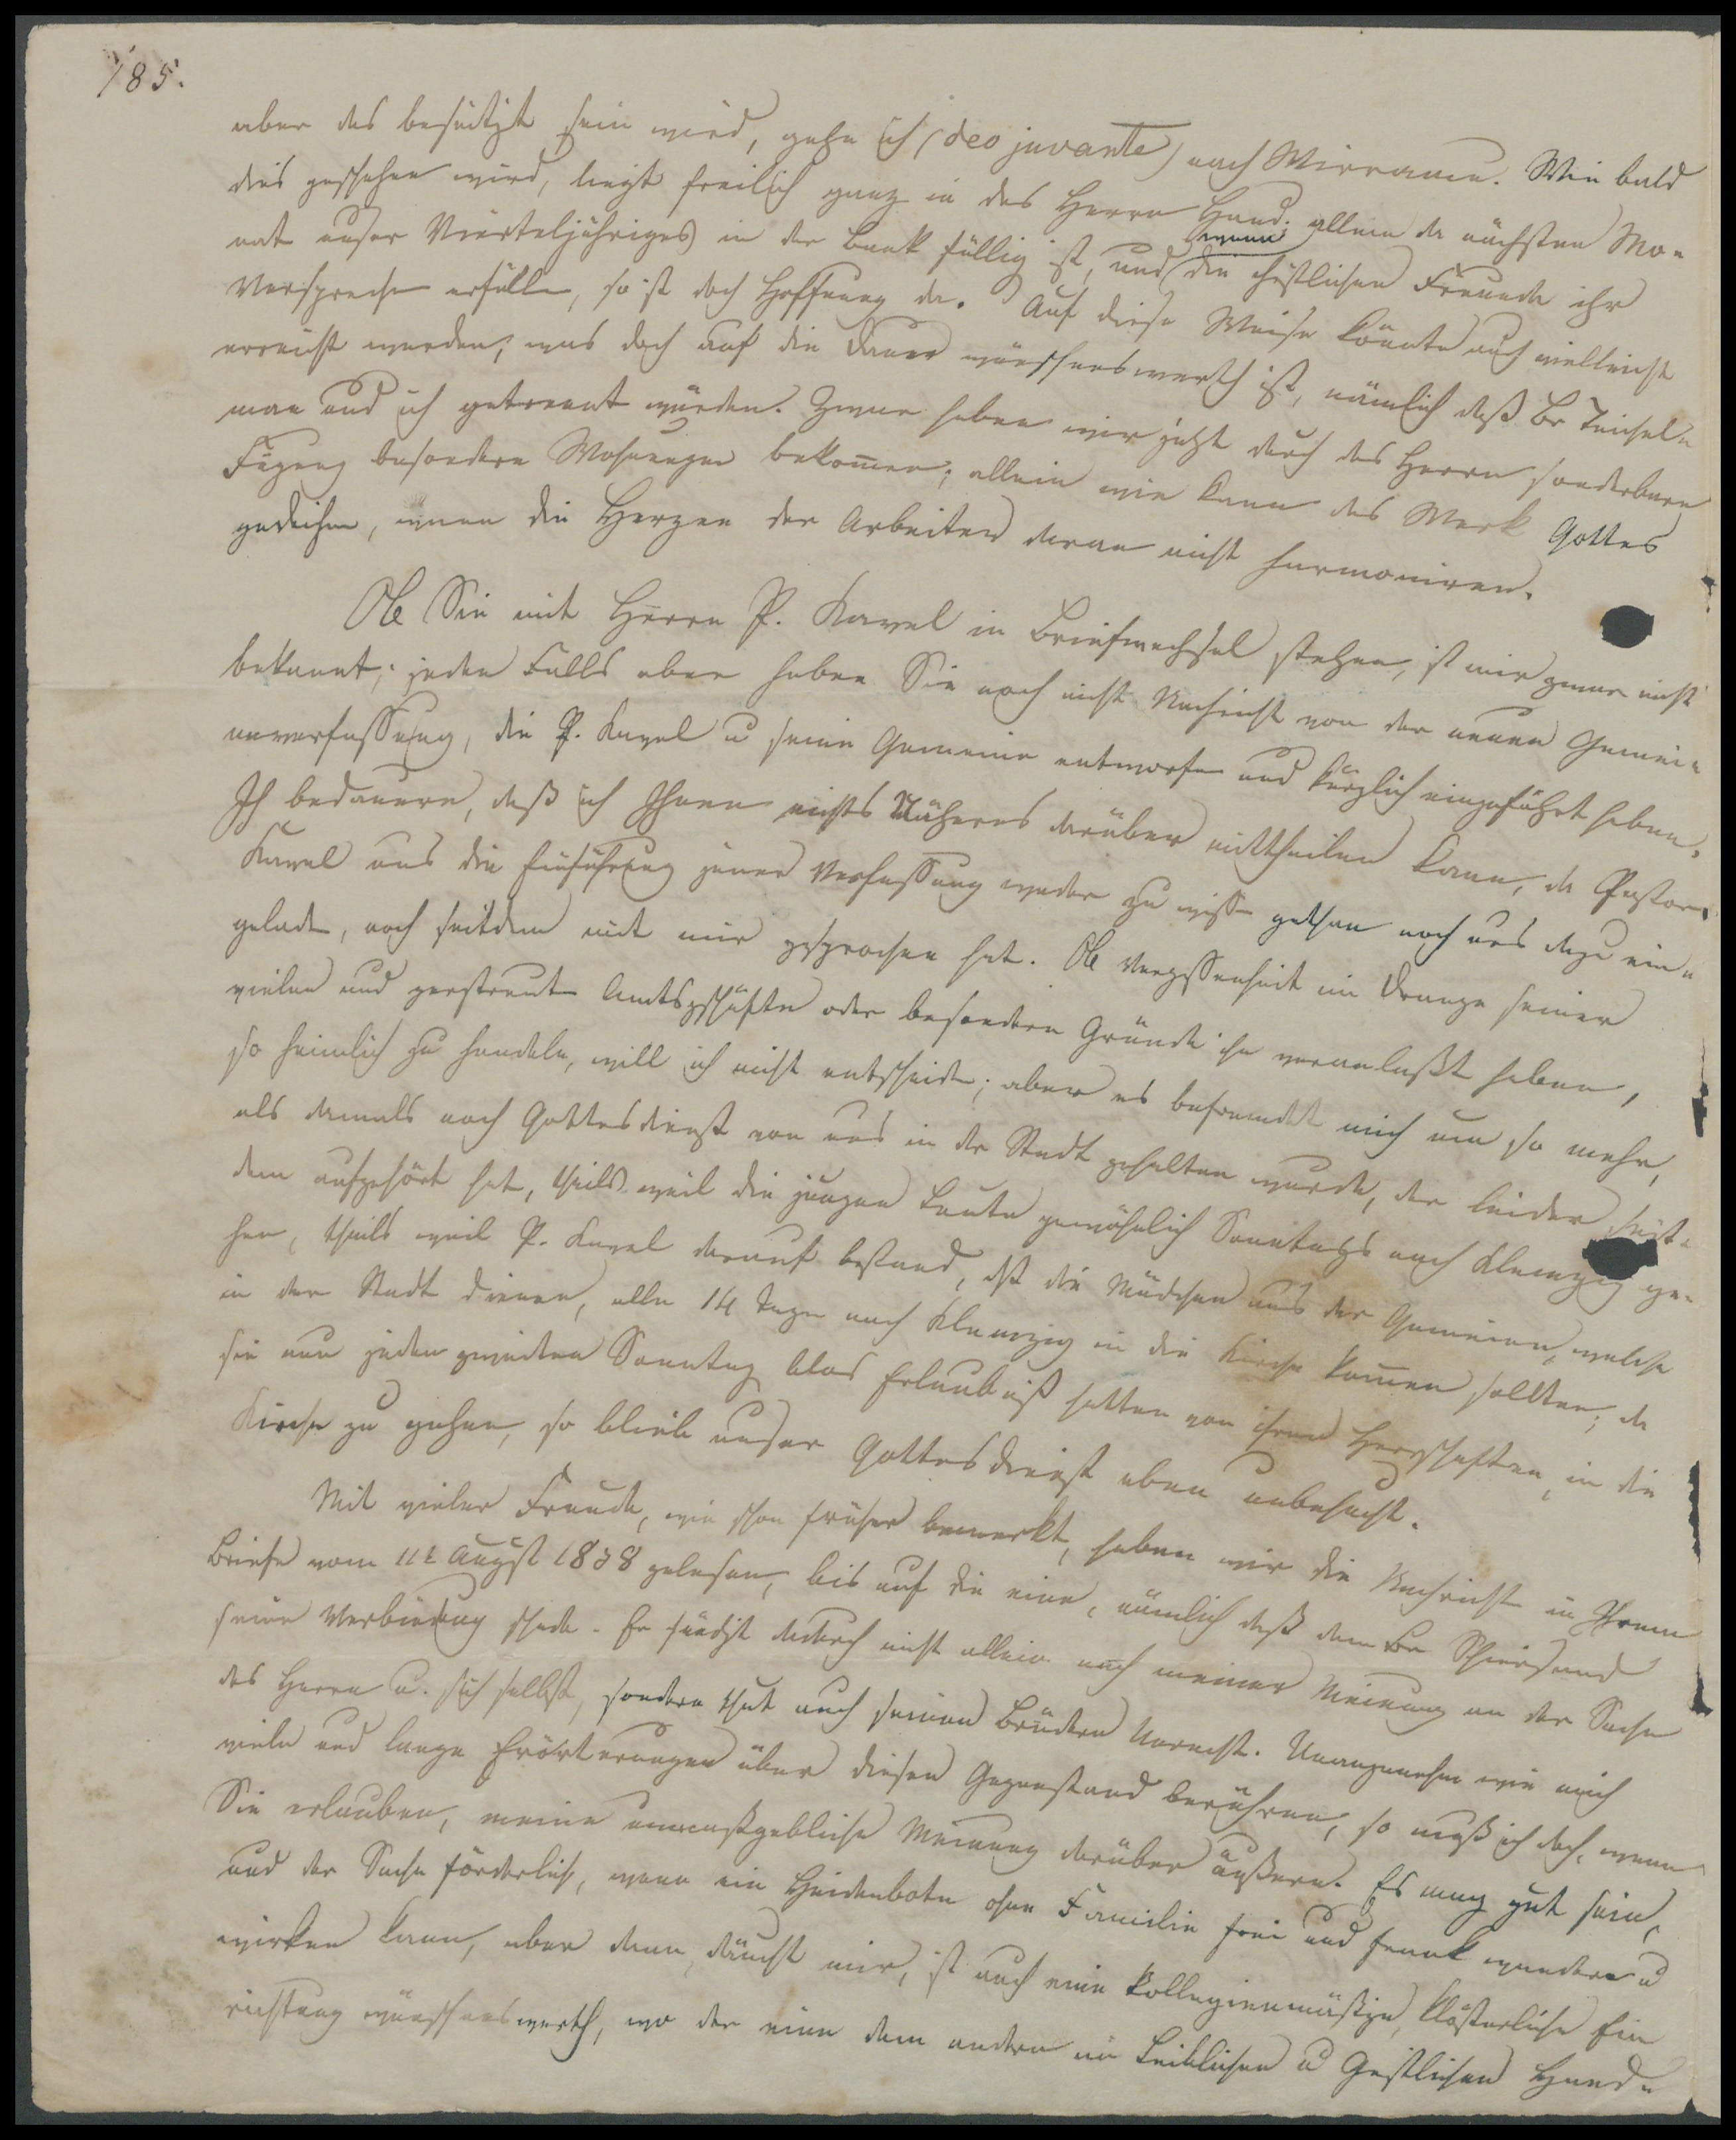 185.
aber das beseitigt sein wird, gehe ich (deo juvante) nach Wirrawu. Wie bald
dies geschehen wird, liegt freilich ganz in des Herrn Hand; allein da nächsten Mo-
nat unser Vierteljähriges in der Bank fällig ist, und wenn die christlichen Freunde ihr
Versprechen erfüllen, so ist doch Hoffnung da. Auf diese Weise könnte auch vielleicht
erreicht werden, was doch auf die Dauer wünschenswerth ist, nämlich daß Br Teichel-
man und ich getrennt würden. Zwar haben wir jetzt durch des Herrn sonderbare
Fügung besondere Wohnungen bekommen; allein wie kann das Werk Gottes
gedeihen, wenn die Herzen der Arbeiter daran nicht harmoniren.
Ob Sie mit Herrn P. Kavel in Briefwechsel stehen, ist mir zwar nicht
bekannt; jeden Falls aber haben Sie noch nicht Nachricht von der neuen Gemei-
neverfassung, die P. Kavel u seine Gemeine entworfen und kürzlich eingeführt haben.
Ich bedauere, daß ich Ihnen nichts Näheres darüber mittheilen kann, da Pastor
Kavel uns die Einführung jener Verfassung weder zu wissen gethan noch uns dazu ein-
geladen, noch seitdem mit mir gesprochen hat. Ob Vergessenheit im Drange seiner
vielen und zerstreuten Amtsgeschäfte oder besondere Gründe ihn veranlaßt haben,
so heimlich zu handeln, will ich nicht entscheiden; aber es befremdet mich um so mehr,
als damals noch Gottesdienst von uns in der Stadt gehalten wurde, der leider seit-
dem aufgehört hat, theils weil die jungen Leute gewöhnlich Sonntags nach Klemzig ge-
hen, theils weil P. Kavel darauf bestand, daß die Mädchen aus der Gemeine, welche
in der Stadt dienen, alle 14 Tage nach Klemzig in die Kirche kommen sollten; da
sie nun jeden zweiten Sonntag blos Erlaubniß hatten von ihren Herrschaften, in die
Kirche zu gehen, so blieb unser Gottesdienst eben unbesucht.
Mit vieler Freude, wie schon früher bemerkt, haben wir die Nachricht in Ihrem
Briefe vom August 1838 gelesen, bis auf die eine, nämlich daß dem Br
seine Verbindung schade. Er sündigt dadurch nicht allein nach meiner Meinung an der Sache
des Herrn u. sich selbst, sondern thut auch seinen Brüdern Unrecht. Unangenehm wie mich
viele und lange Erörterungen über diesen Gegenstand berühren, so muß ich doch, wenn
Sie erlauben, meine unmaßgebliche Meinung darüber äußern. Es mag gut sein,
und der Sache förderlich, wenn ein Heidenbote ohne Familie frei und frank wandern u
wirken kann, aber dann, däucht mir, ist auch eine kollegienmäßige, klösterliche Ein
richtung wünschenswerth, wo der eine dem andern im Leiblichen u Geistlichen Hand-